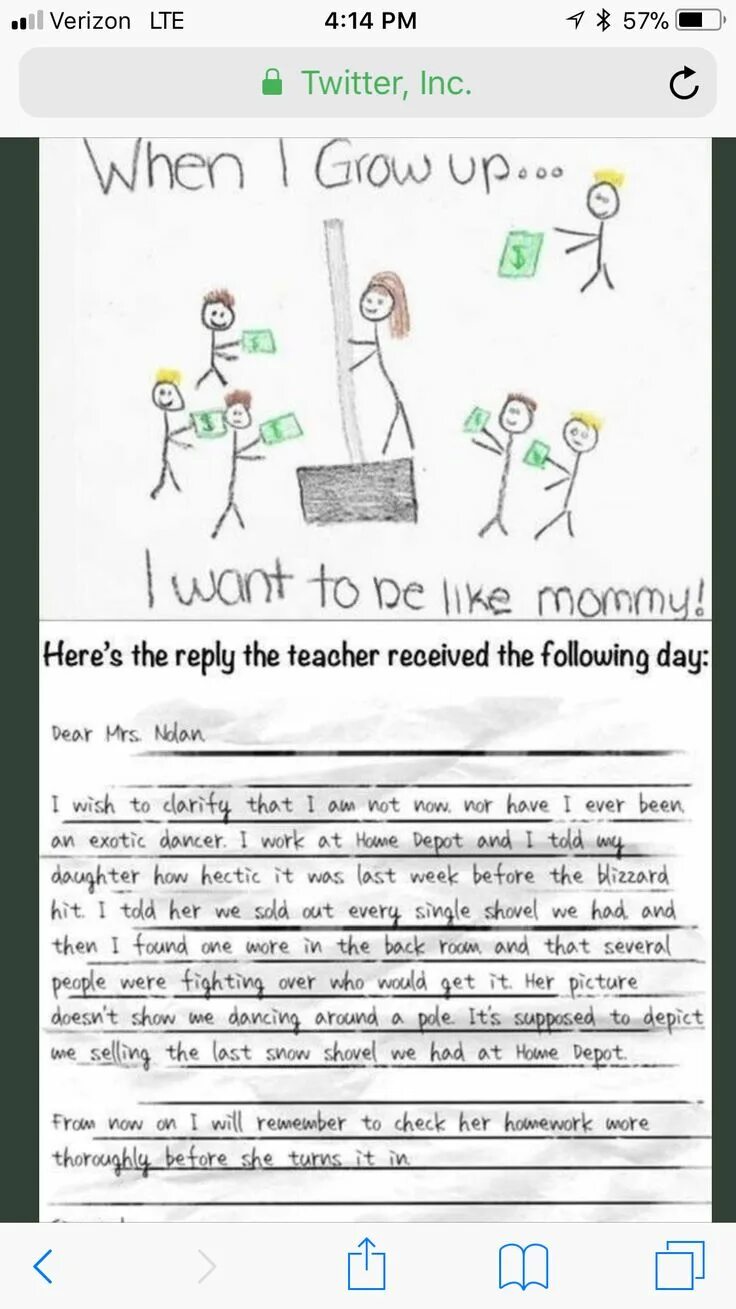 Verizon LTE 4:14 PM 57%
Twitter, Inc.
When I Grow up...
$
$
$
$
$
$
I want to be like mommy!
Here's the reply the teacher received the following day:
Dear Mrs. Nolan
I wish to clarify that I am not now, nor have I ever been,
an exotic dancer. I work at Home Depot and I told my
daughter how hectic it was last week before the blizzard
hit. I told her we sold out every single shovel we had, and
then I found one more in the back room, and that several
people were fighting over who would get it. Her picture
doesn't show me dancing around a pole. It's supposed to depict
me selling the last snow shovel we had at Home Depot.
From now on I will remember to check her homework more
thoroughly before she turns it in.